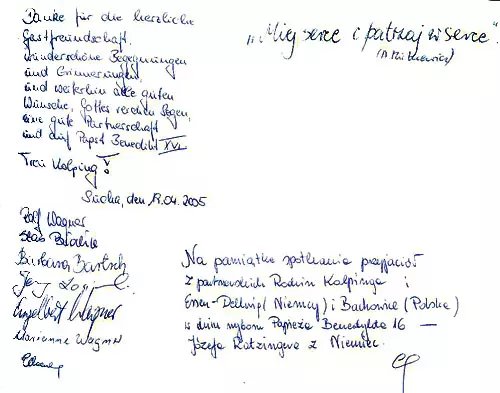 Danke für die herzliche
Gastfreundschaft,
wunderschöne Begegnungen
und Erinnerungen,
und weiterhin alle guten
Wünsche, Gottes reichen Segen,
eine gute Partnerschaft
und auf Papst Benedikt XVI.
Treu Kolping!
Sucha, den 19.04.2005
„Miej serce i patrzaj w serce"
(A. Mickiewicz)
Rolf Wagner
Barbara Bartsch
Jerzy
Engelbert Wagner
Marianne Wagner
Na pamiątkę spotkania przyjaciół
z partnerskich Rodzin Kolpinga i
Essen-Dellwig (Niemcy) i Bachowice (Polska)
w dniu wyboru Papieża Benedykta 16 —
Józefa Ratzingera z Niemiec.